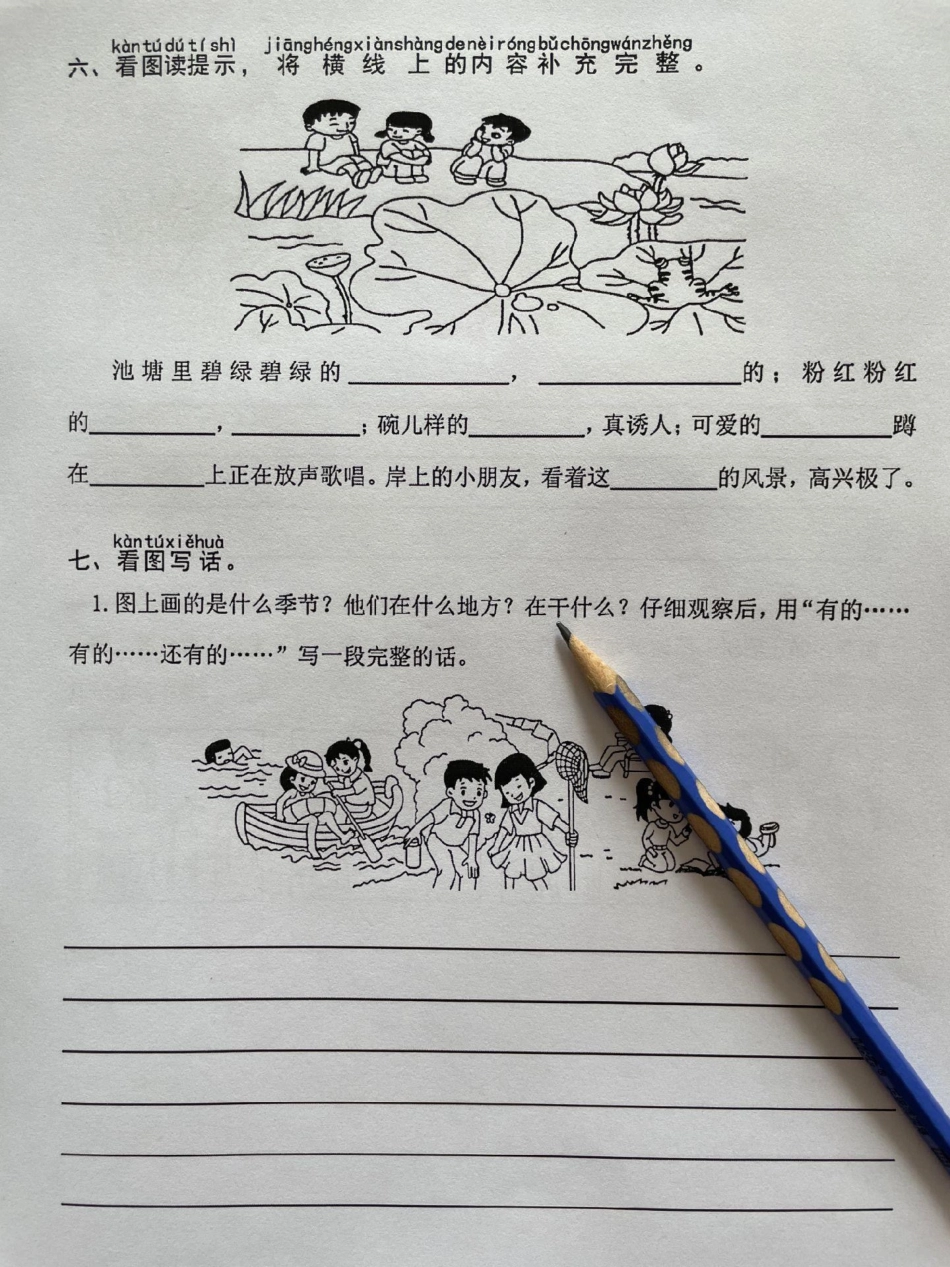 kàn tú dú tí shì jiāng héng xiàn shàng de nèi róng bǔ chōng wán zhěng
六、看图读提示，将横线上的内容补充完整。
池塘里碧绿碧绿的____________，________________的；粉红粉红
的__________，__________；碗儿样的_________，真诱人；可爱的__________蹲
在_________上正在放声歌唱。岸上的小朋友，看着这________的风景，高兴极了。
kàn tú xiě huà
七、看图写话。
1.图上画的是什么季节？他们在什么地方？在干什么？仔细观察后，用“有的……
有的……还有的……”写一段完整的话。